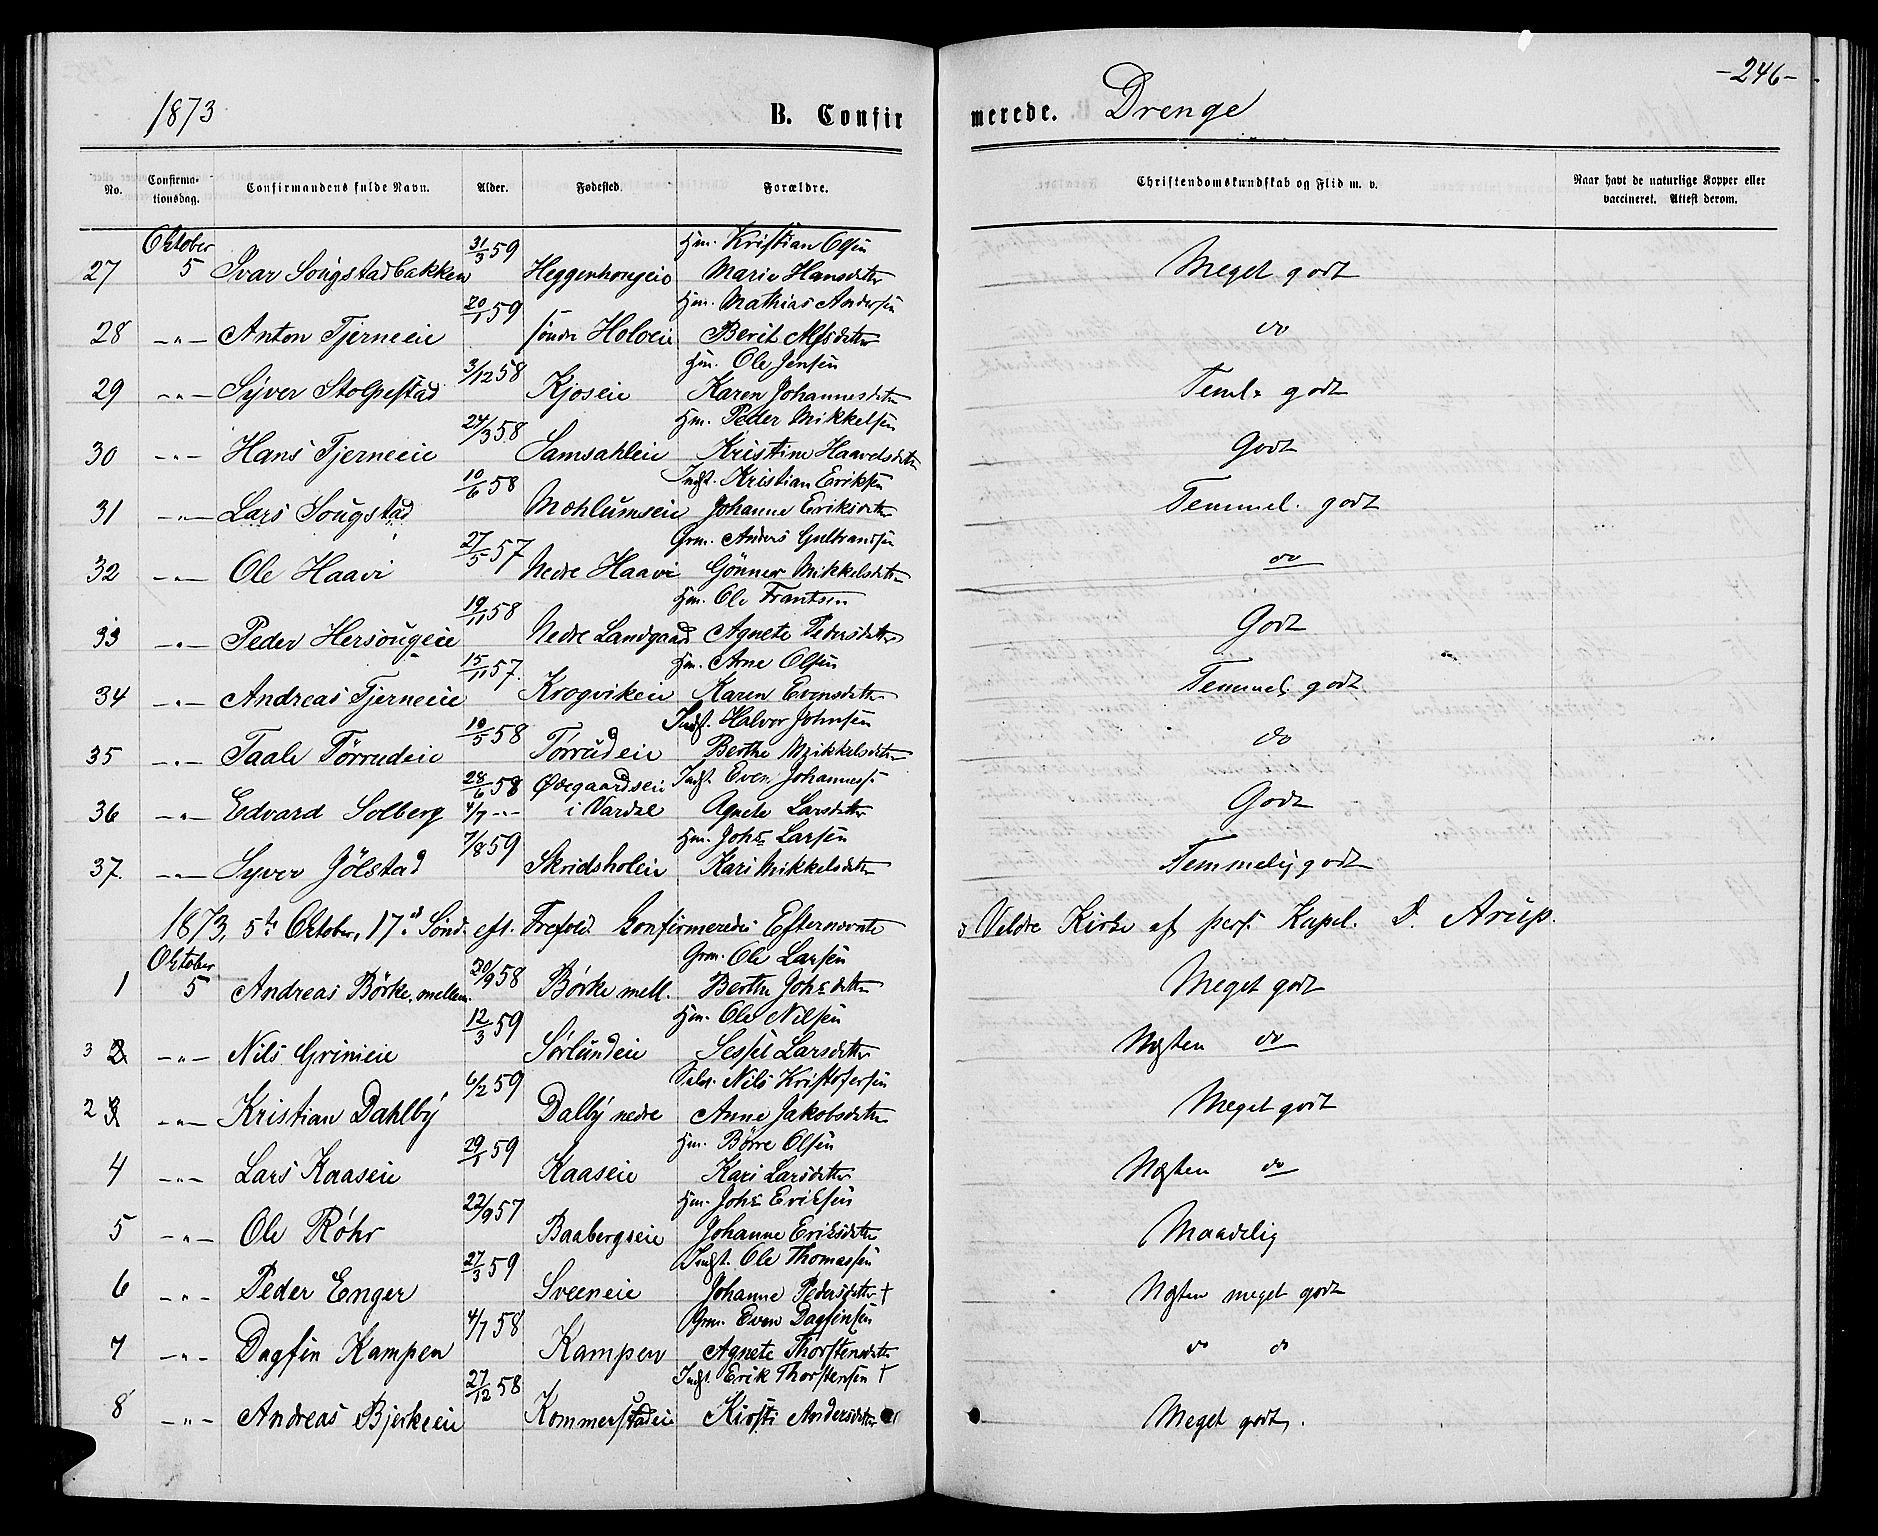 -246-
1873
B. Confirmerede. Drenge
No. Confirmationsdag. Confirmandens fulde Navn. Alder. Fødested. Forældre. Christendomskundskab og Flid m. v. Naar havt de naturlige Kopper eller vaccineret. Attest derom.
Oktober 31/3 59 Hm. Kristian Olsen
27 5 Ivar Sougstadbakken Heggenhougeie Marie Hansdatter Meget godt
20/1 59 Hm. Mathias Andersen
28 -"- Anton Tjerneeie søndre Holoeie Berit Alfsdatter do
3/12 58 Hm. Ole Jensen
29 -"- Syver Stolpestad Kjoseie Karen Johannesdatter Teml. godt
24/3 58 Hm. Peder Mikkelsen
30 -"- Hans Tjerneeie Samsahleie Kristine Haavelsdatter Godt
10/6 58 Indst. Kristian Eriksen
31 -"- Lars Sougstad Mohlumseie Johanne Eriksdatter Temmel. godt
27/5 57 Grm. Anders Gulbrandsen
32 -"- Ole Haavi Nedre Haavi Gønner Mikkelsdatter do
19/11 58 Hm. Ole Frantsen
33 -"- Peder Hersougeie Nedre Landgaard Agnete Pedersdatter Godt
15/11 57. Hm. Arne Olsen
34 -"- Andreas Tjerneeie Krogvikeie Karen Evensdatter Temmel. godt.
10/5 58 Indst. Halvor Johnsen
35 -"- Taale Tørrudeie Torrudeie Berthe Mikkelsdatter do
28/6 58 Øvegaardseie Indst. Even Johanness.
36 -"- Edvard Solberg 4/7 -"- i Vardal Agnete Larsdatter Godt
7/8 59 Hm. Johs Larsen
37. -"- Syver Jølstad Skridsholeie Kari Mikkelsdatter Temmelig godt
1873, 5te Oktober, 17de Sønd. eft. Trefold. Confirmerede Efternævnte i Veldre Kirke af pers. Kapel. D. Arup.
Oktober 30/9 58 Grm. Ole Larsen
1 5 Andreas Børke, mellem. Børke mell. Berthe Johsdatter Meget godt
12/3 59 Hm. Ole Nilsen
3 2 -"- Nils Grimeie Sørlundeie Sessel Larsdatter Næsten do
6/2 59 Selv. Nils Kristofersen
2 3 -"- Kristian Dahlby Dalby nedre Anne Jakobsdatter Meget godt
29/1 59 Hm. Børre Olsen
4 -"- Lars Kaaseie Kaaseie Kari Larsdatter Næsten do
22/9 57 Hm. Johs Eriksen
5 -"- Ole Røhr Baabergseie Johanne Eriksdatter Maadelig
27/3 59 Indst. Ole Thomassen
6 -"- Peder Enger Sveeneie Johanne Pedersdatter † Næsten meget godt
4/7 58 Grm. Even Dagfinsen
7 -"- Dagfin Kampen Kampen Agnete Thorstensdatter do do
27/12 58 Indst. Erik Thorstensen †
8 -"- Andreas Bjerkeeie Kommerstadeie Kirsti Andersdatter Meget godt.